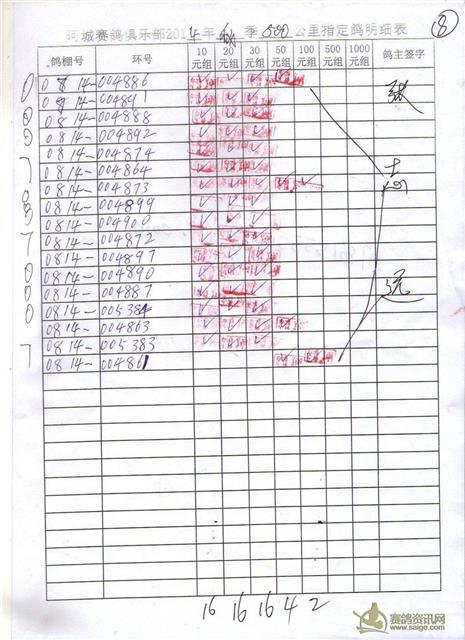 阿城赛鸽俱乐部2014年秋季500公里指定鸽明细表
⑧
鸽棚号 环号 10元组 20元组 30元组 50元组 100元组 500元组 1000元组 鸽主签字
0814-004886
0814-004891
0814-004888
0814-004892
0814-004874
0814-004864
0814-004873
0814-004899
0814-004900
0814-004872
0814-004897
0814-004890
0814-004887
0814-005384
0814-004863
0814-005383
0814-004861
张
士
远
16 16 16 4 2
赛鸽资讯网
www.saige.com